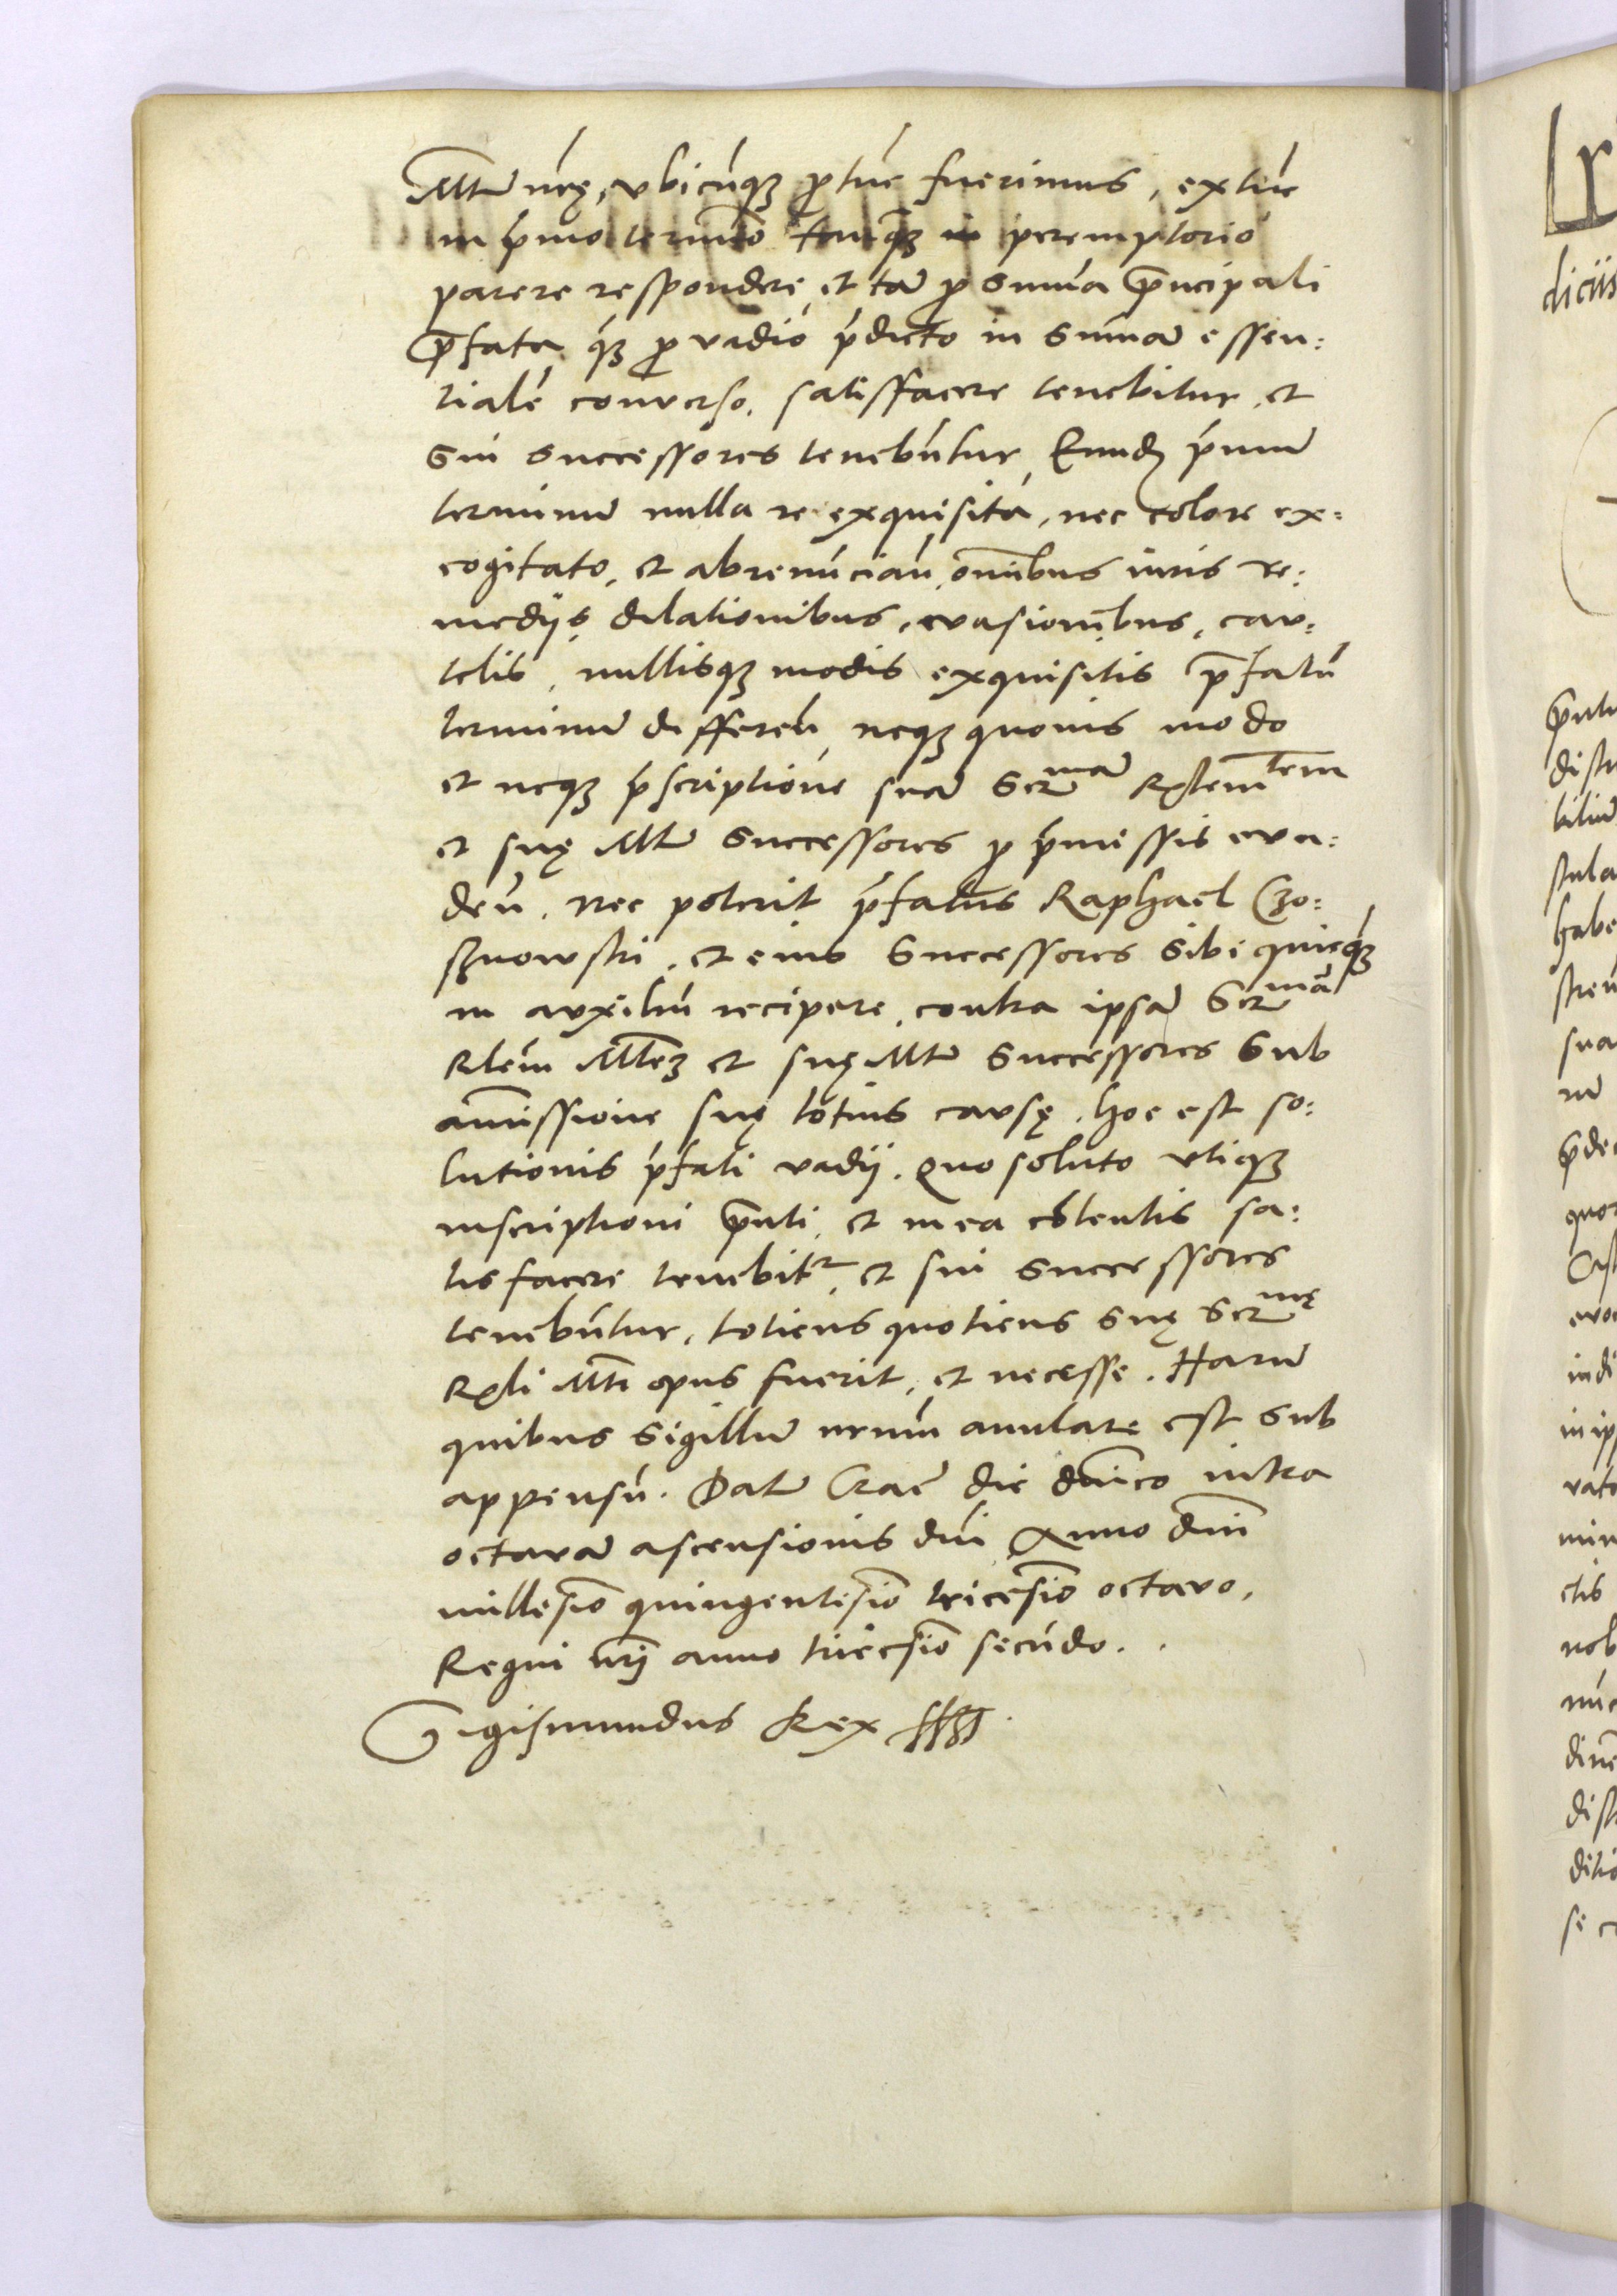 Mtis nrę, vbicunqꝫ ꝓtunc fuerimus, extunc
in primo termino tanqꝫ in peremptorio
parere respondere et tam ꝓ summa principali
prefata qꝫ ꝓ vadio predicto in summam essen:
tialem converso, satisfacere tenebitur, et
Sui Successores tenebuntur, Eundem primum
terminum nulla re exquisita, nec colore ex:
cogitato, et abrenuncian omnibus iuris re:
medijs, dilationibus, evasionibus, cav:
telis, nullisqꝫ modis exquisitis prefatum
terminum differen, neqꝫ quouis modo
et neqꝫ prescriptione suam Sermam Rglem Mtem
et suę Mtis Successores ꝓ premissis eva:
den, nec poterit prefatus Raphael Czo:
sznowski, et eius Successores Sibi quicqꝫ
in avxilium recipere, contra ipsam Sermam
Rlem Mtemꝫ et suę Mtis Successores Sub
amissione suę totius cavsę, hoc est so:
lutionis prefati vadij. Quo soluto vtiqꝫ
inscriptioni prnti, et in ea cōtentis sa:
tisfacere tenebitr, et sui Successores
tenebuntur, totiens quotiens Suę Sermę
Rgli Mti opus fuerit, et necesse. Harum
quibus Sigillum nrum anulare est Sub
appensum. Datum Crac die dnico intra
octavam ascensionis dni Anno dni
millesimo quingentesimo tricesimo octavo,
Regni nri anno tricesimo secundo.
Sigismundus Rex